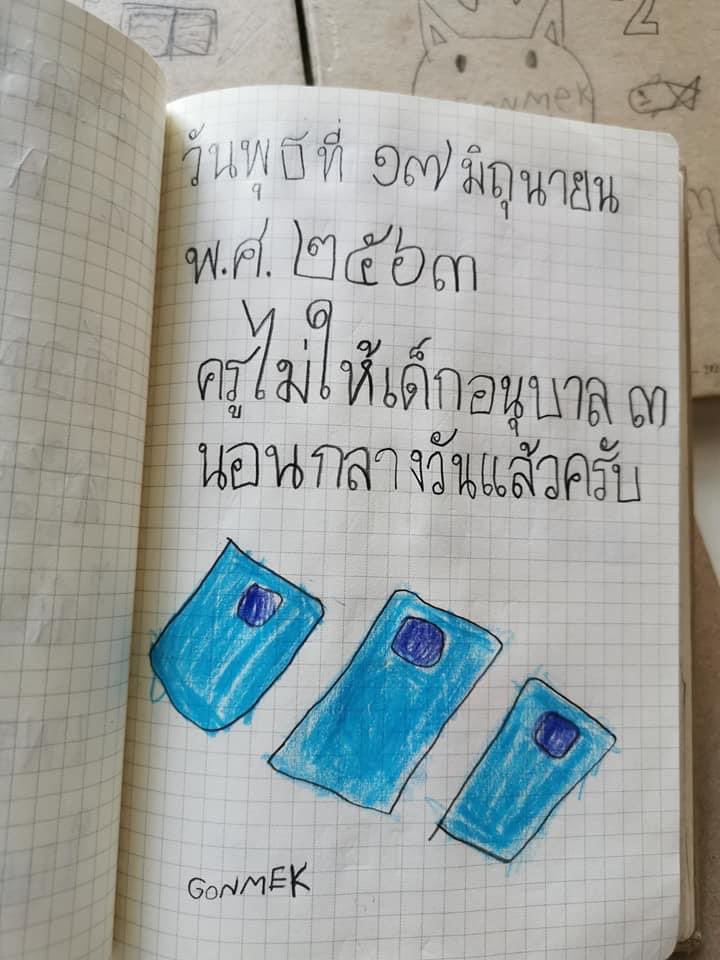 2
GONMEK
วันพุธที่ ๑๗ มิถุนายน
พ.ศ. ๒๕๖๓
ครูไม่ให้เด็กอนุบาล ๓
นอนกลางวันแล้วครับ
GONMEK